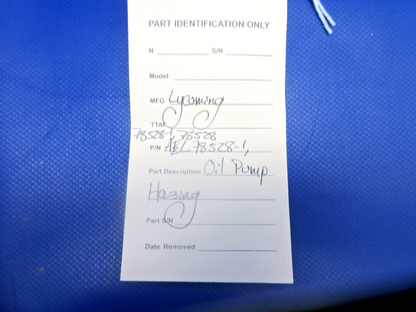 PART IDENTIFICATION ONLY
N S/N
Model
MFG Lycoming
TTAF
78528-1, 78528
P/N AEL78528-1,
Part Description Oil Pump
Housing
Part S/N
Date Removed